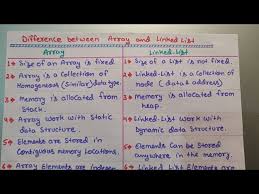 Difference between Array and Linked List
Array
Linked List
1→ Size of an Array is fixed.
2→ Array is a Collection of
Homogeneous (Similar) data type.
3→ Memory is allocated from
Stack.
4→ Array work with Static
data Structure.
5→ Elements are Stored in
Contiguous memory locations.
6→ Array Elements are Indepen
1→ Size of a List is not fixed.
2→ Linked-List is a Collection of
node (data & address)
3→ Memory is allocated from
heap.
4→ Linked-List work with
Dynamic data Structure.
5→ Elements can be Stored
anywhere in the memory.
6→ Linked List Elements are